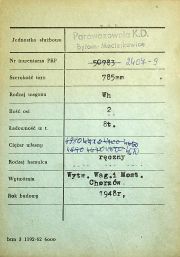 Jednostka służbowa
Parowozownia K.D.
Bytom-
Nr inwentarza PKP 50983 2407-9
Szerokość toru 785mm
Rodzaj wagonu Wh
Ilość osi 2
Ładowność w t. 8t.
Ciężar własny
Rodzaj hamulca ręczny
Wytwórnia Wytw. Wag. i Most. Chorzów.
Rok budowy 1948r.